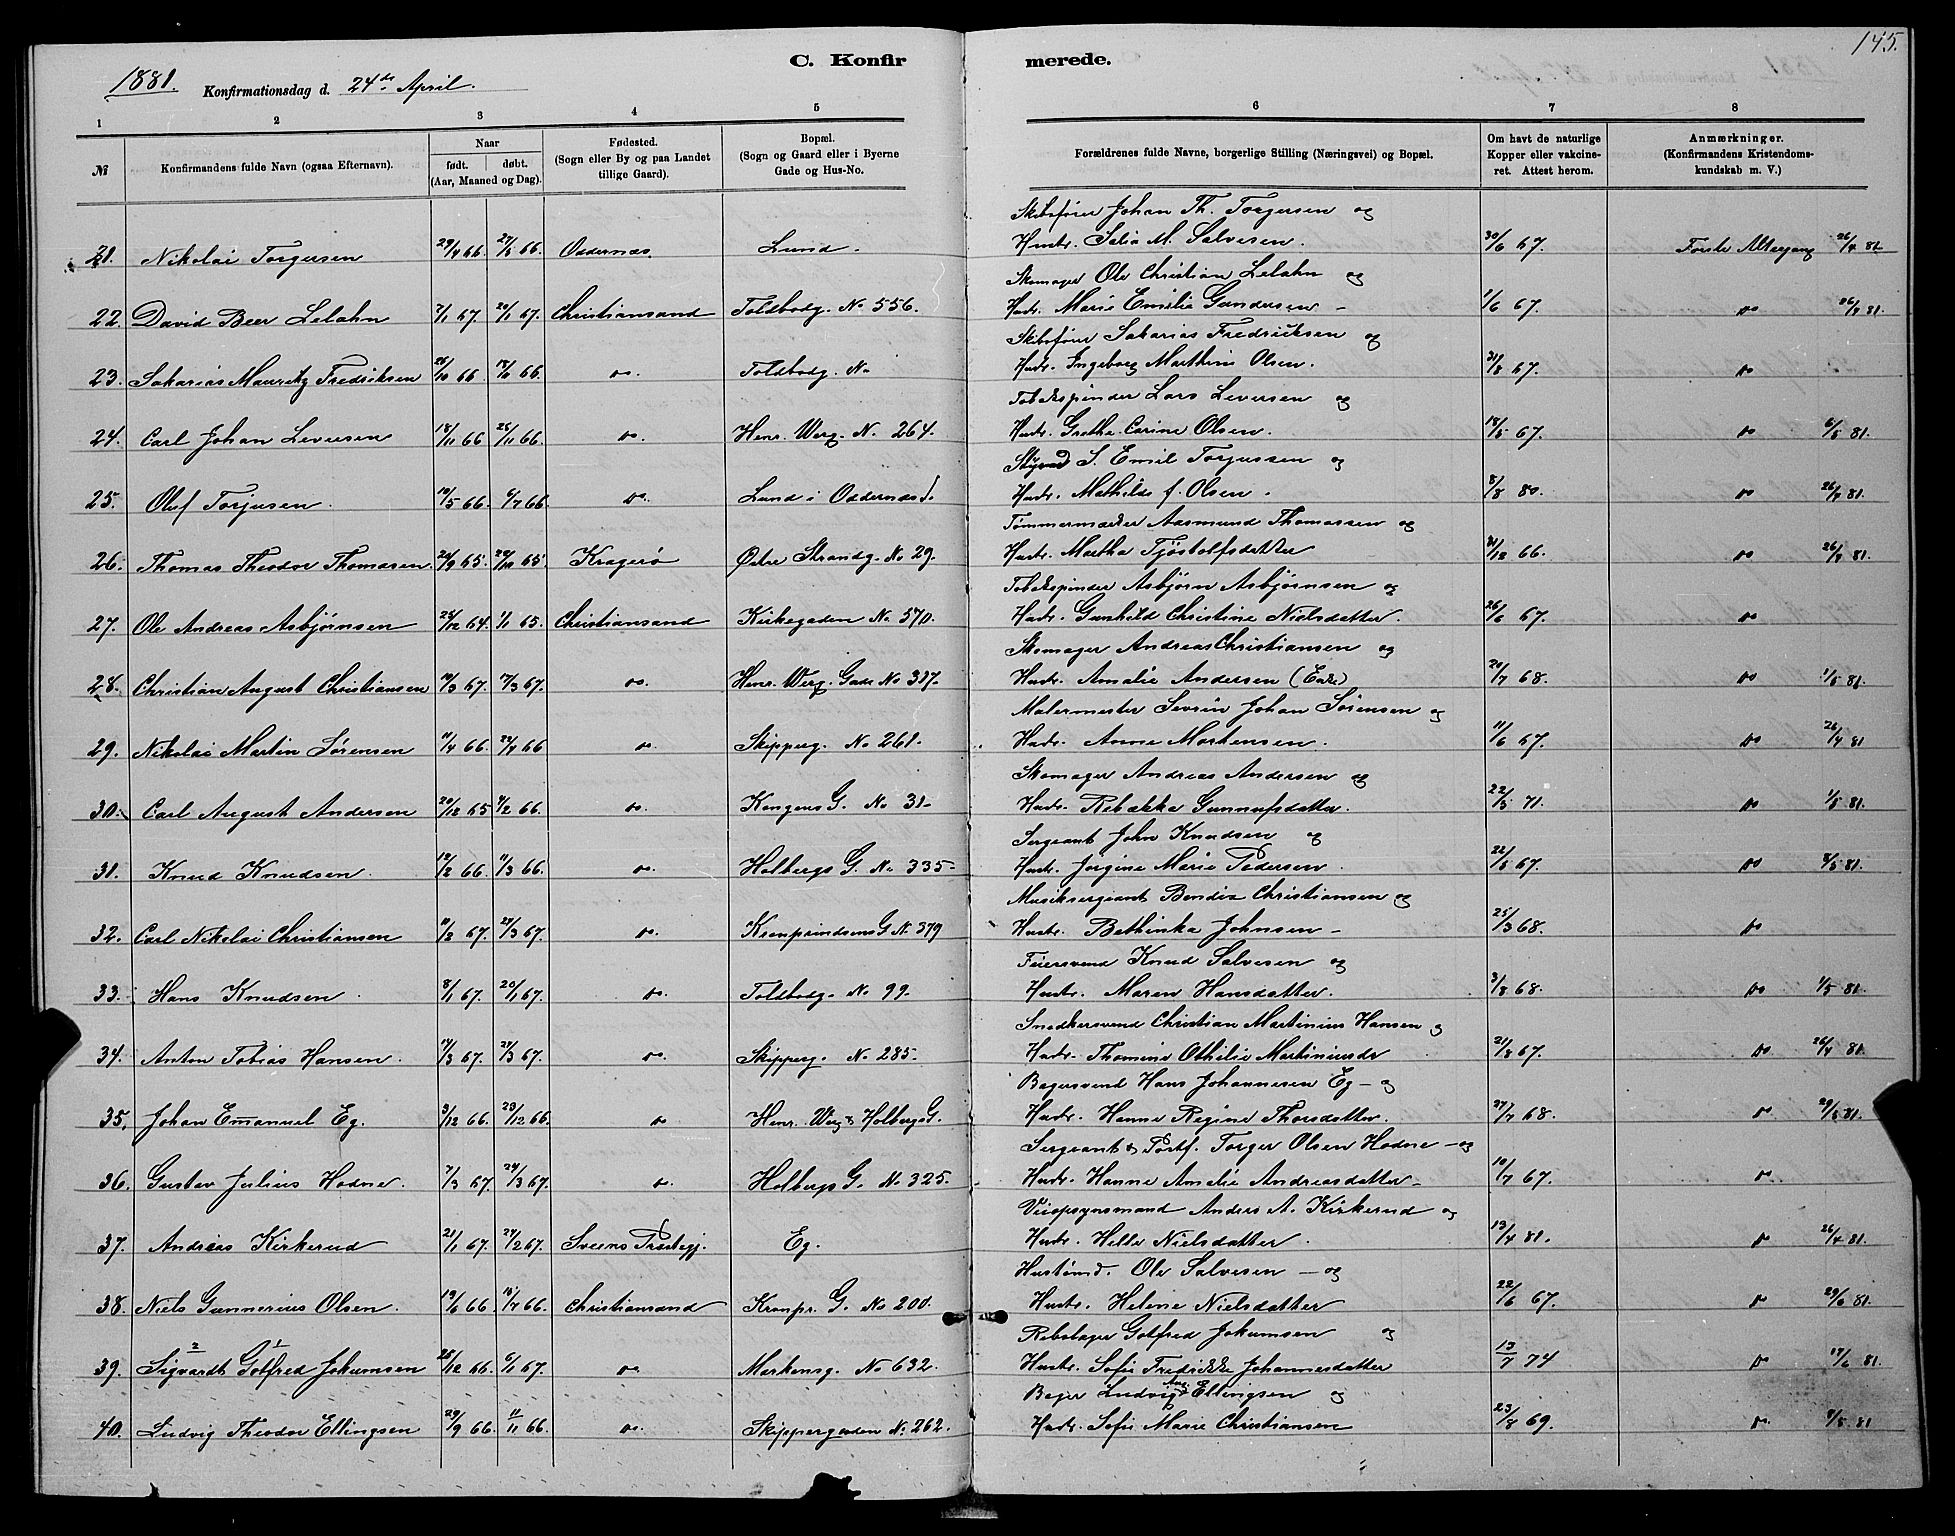 145.
C. Konfir merede.
1881. Konfirmationsdag d. 24de April.
1 2 3 4 5 6 7 8
№ Konfirmandens fulde Navn (ogsaa Efternavn). Naar født. døbt. (Aar, Maaned og Dag). Fødested. (Sogn eller By og paa Landet tillige Gaard). Bopæl. (Sogn og Gaard eller i Byerne Gade og Hus-No. Forældrenes fulde Navne, borgerlige Stilling (Næringsvei) og Bopæl. Om havt de naturlige Kopper eller vakcineret. Attest herom. Anmærkninger. (Konfirmandens Kristendomskundskab m. V.)
Skibsfører Johan Th. Torgersen og
21. Nikolai Torgersen 29/4 66. 27/5 66. Oddernæs. Lund. Hustr. Salia M. Salvesen. 30/6 67. Første Altergang 26/4 81.
Skomager Ole Christian Lelahn og
22. David Beer Lelahn 7/1 67. 20/1 67. Christiansand Toldbodg. No 556. Hustr. Marie Emilie Gundersen 1/6 67. do 26/4 81.
Skibsfører Sakarias Fredriksen og
23. Sakarias Mauritz Fredriksen /10 66. 66. do. Toldbodg. No Hustr. Ingeborg Marthine Olsen. 31/8 67. do
Tobakspinder Lars Leversen og
24. Carl Johan Leversen 18/11 66 25/11 66. do. Henr. Werg. N. 264. Hustr. Grethe Carine Olsen. 18/5 67. do 6/5 81.
S. Emil Torjussen og
25. Oluf Torjusen. 10/5 66. 6/7 66. do. Lund i Oddernæs Hustr. Mathilde f. Olsen. 8/8 80. do 26/4 81.
Tømmermækler Aasmund Thomassen og
26. Thomas Theodor Thomasen. 24/9 65. 29/10 65 Kragerø Østre Strandg. No 29. Hustr. Martha Tjøstolfsdatter 21/12 66. do 26/4 81.
Tobakspinder Asbjørn Asbjørnsen og
27. Ole Andreas Asbjørnsen 25/12 64. 1/1 65. Christiansand Kirkegaden No. 570. Hustr. Gunhild Christine Nielsdatter. 26/6 67. do
Skomager Andreas Christiansen og
28. Christian August Christiansen /3 67. 17/3 67. do. Henr. Werg. Gade No 317. Hustr. Amalie Andersen (Enke) 20/7 68. do 1/5 81.
Malermester Sevrin Johan Sørensen og
29. Nikolai Martin Sørensen 11/4 66. 22/4 66 do. Skipperg. No 261. Hustr. Anne Mortensen. 11/6 67. do 26/4 81
Skomager Andreas Andersen og
30. Carl August Andersen 20/12 65 4/2 66. do. Kongens G. No 31. Hustr. Rebækka Gunnufsdatter. 22/5 71. do 1/5 81.
Sergeant John Knudsen og
31. Knud Knudsen. 12/2 66. 11/3 66. do. Holbergs G. No 335. Hustr. Jørgine Marie Pedersen. 22/5 67. do /5 81.
Musiksergeant Bendix Christiansen og
32. Carl Nikolai Christiansen 11/2 67. 24/3 67. do. Kronprindsens G No. 379 Hustr. Bethinka Johnsen 25/3 68. do
Feiersvend Knud Salvesen og
33. Hans Knudsen. 8/1 67. 20/1 67. do. Toldbodg. No 99. Hustr. Maren Hansdatter. 3/8 68. do 1/5 81.
Snedkersvend Christian Martinius Hansen og
34. Anton Tobias Hansen. 17/3 67. 31/3 67. do Skipperg. No 285. Hustr. Thomine Othilie 21/8 67. do 26/4 81.
Bagersvend Hans Johannesen Eg og
35. Johan Emanuel Eg. 3/12 66. 23/12 66. do Henr. Werg & Holbergs G. Hustr. Hanne Regine Thorsdatter. 27/7 68. do 29/5 81.
Sergeant & Portf. Torger Olsen Hodne og
36. Gustav Julius Hodne. 7/3 67. 24/3 67. do. Holbergs G. No 325. Hustr. Hanne Amalie Andreasdatter 10/7 67. do
Veiopsynsmand Anders A. Kirkerud og
37. Andreas Kirkerud 21/1 67. 24/2 67. Sveens Præstegj. Eg. Hustr. Helle Nielsdatter. 13/4 81. do 26/4 81.
Hustømd. Ole Salvesen og
38. Niels Gunnerius Olsen. 19/6 66. 15/7 66. Christiansand Kronpr. G. No 200. Hustr. Helene Nielsdatter 22/6 67. do 29/6 81.
Rebslager Gotfred Jokumsen og
39. Sigvardt Gotfred Jokumsen 25/12 66. 6/1 67. do Markensg. No 632. Hustr. Sofie Fredrikke Johannesdatter 13/7 74 do 17/6 81.
Bager Ludvig Aug. Ellingsen og
40. Ludvig Theodor Ellingsen 29/9 66. 11/11 66. do. Skippergaden No. 262. Hustr. Sofie Marie Christiansen 23/8 69. do /5 81.